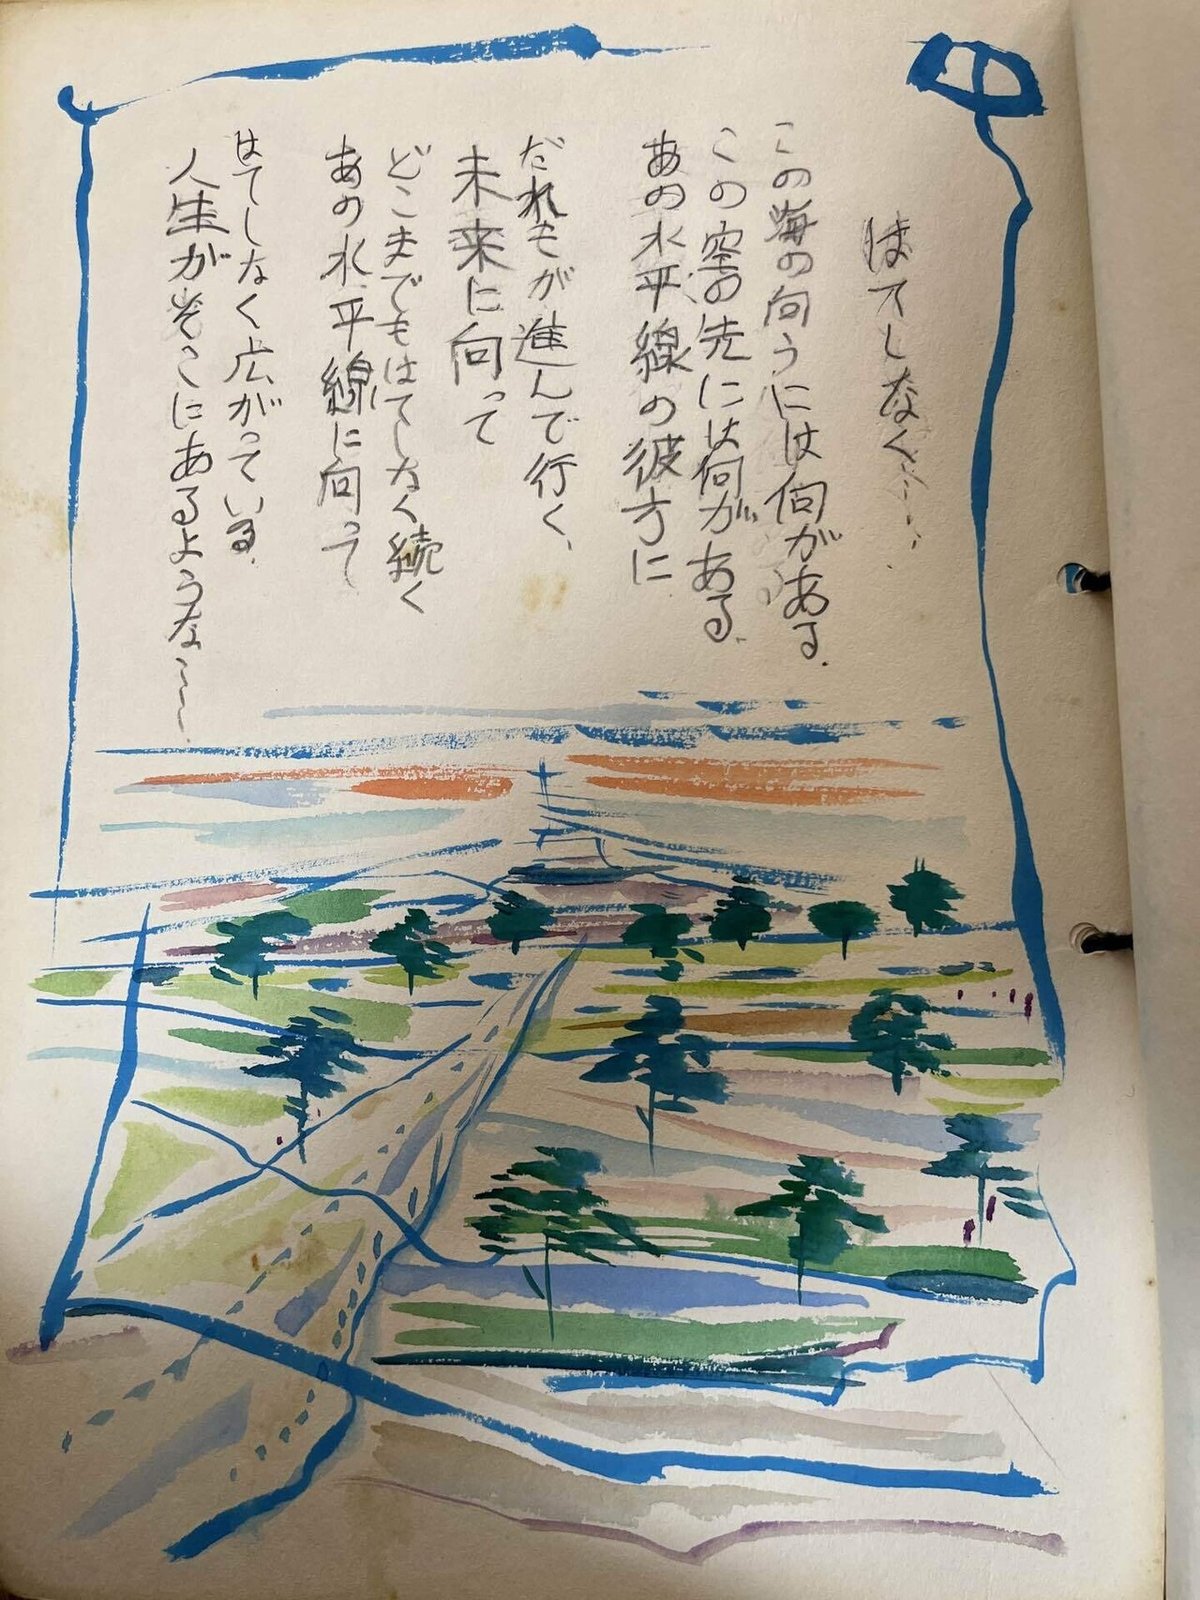 はてしなく……
この海の向うには何がある.
この空の先には何がある.
あの水平線の彼方に
だれもが進んで行く、
未来に向って
どこまでもはてしなく続く
あの水平線に向って
はてしなく広がっている.
人生がそこにあるような……